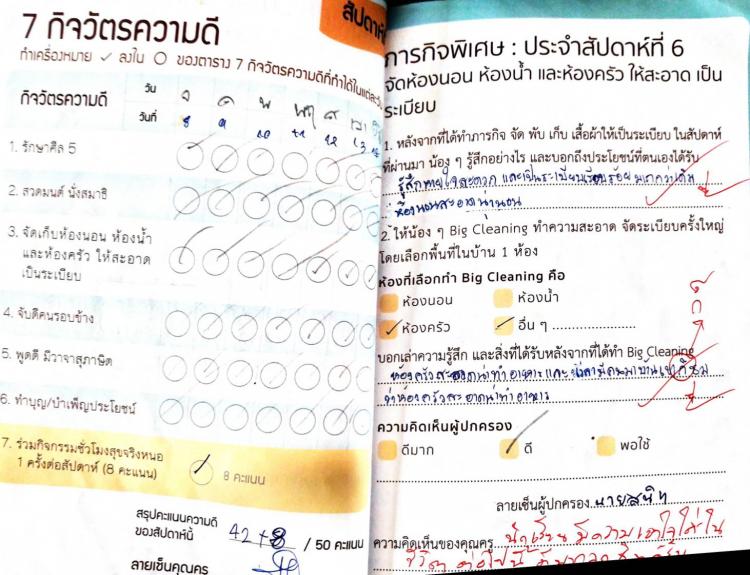 สัปดาห์
7 กิจวัตรความดี
ทำเครื่องหมาย ✓ ลงใน ○ ของตาราง 7 กิจวัตรความดีที่ทำได้ในแต่ละวัน
กิจวัตรความดี
วัน จ อ พ พฤ ศ
วันที่ 8 9 10 11 12 13
1. รักษาศีล 5
2. สวดมนต์ นั่งสมาธิ
3. จัดเก็บห้องนอน ห้องน้ำ
และห้องครัว ให้สะอาด
เป็นระเบียบ
4. จับดีคนรอบข้าง
5. พูดดี มีวาจาสุภาษิต
6. ทำบุญ/บำเพ็ญประโยชน์
7. ร่วมกิจกรรมชั่วโมงสุขจริงหนอ
1 ครั้งต่อสัปดาห์ (8 คะแนน)
✓ 8 คะแนน
สรุปคะแนนความดี
ของสัปดาห์นี้ 42+8 / 50 คะแนน
ลายเซ็นคุณครู
ภารกิจพิเศษ : ประจำสัปดาห์ที่ 6
จัดห้องนอน ห้องน้ำ และห้องครัว ให้สะอาด เป็น
ระเบียบ
1. หลังจากที่ได้ทำภารกิจ จัด พับ เก็บ เสื้อผ้าให้เป็นระเบียบ ในสัปดาห์
ที่ผ่านมา น้อง ๆ รู้สึกอย่างไร และบอกถึงประโยชน์ที่ตนเองได้รับ
รู้สึกสะอาด และเป็นระเบียบเรียบร้อย
ห้องนอนสะอาดน่านอน
2. ให้น้อง ๆ Big Cleaning ทำความสะอาด จัดระเบียบครั้งใหญ่
โดยเลือกพื้นที่ในบ้าน 1 ห้อง
ห้องที่เลือกทำ Big Cleaning คือ
ห้องนอน ห้องน้ำ
✓ ห้องครัว ✓ อื่น ๆ
บอกเล่าความรู้สึก และสิ่งที่ได้รับหลังจากที่ได้ทำ Big Cleaning
ห้องครัวสะอาดน่าทำอาหารและ
ว่าห้องครัวสะอาดน่าทำอาหาร
ความคิดเห็นผู้ปกครอง
ดีมาก ✓ ดี พอใช้
ลายเซ็นผู้ปกครอง นาย
ความคิดเห็นของคุณครู นักเรียนมีความเอาใจใส่ใน